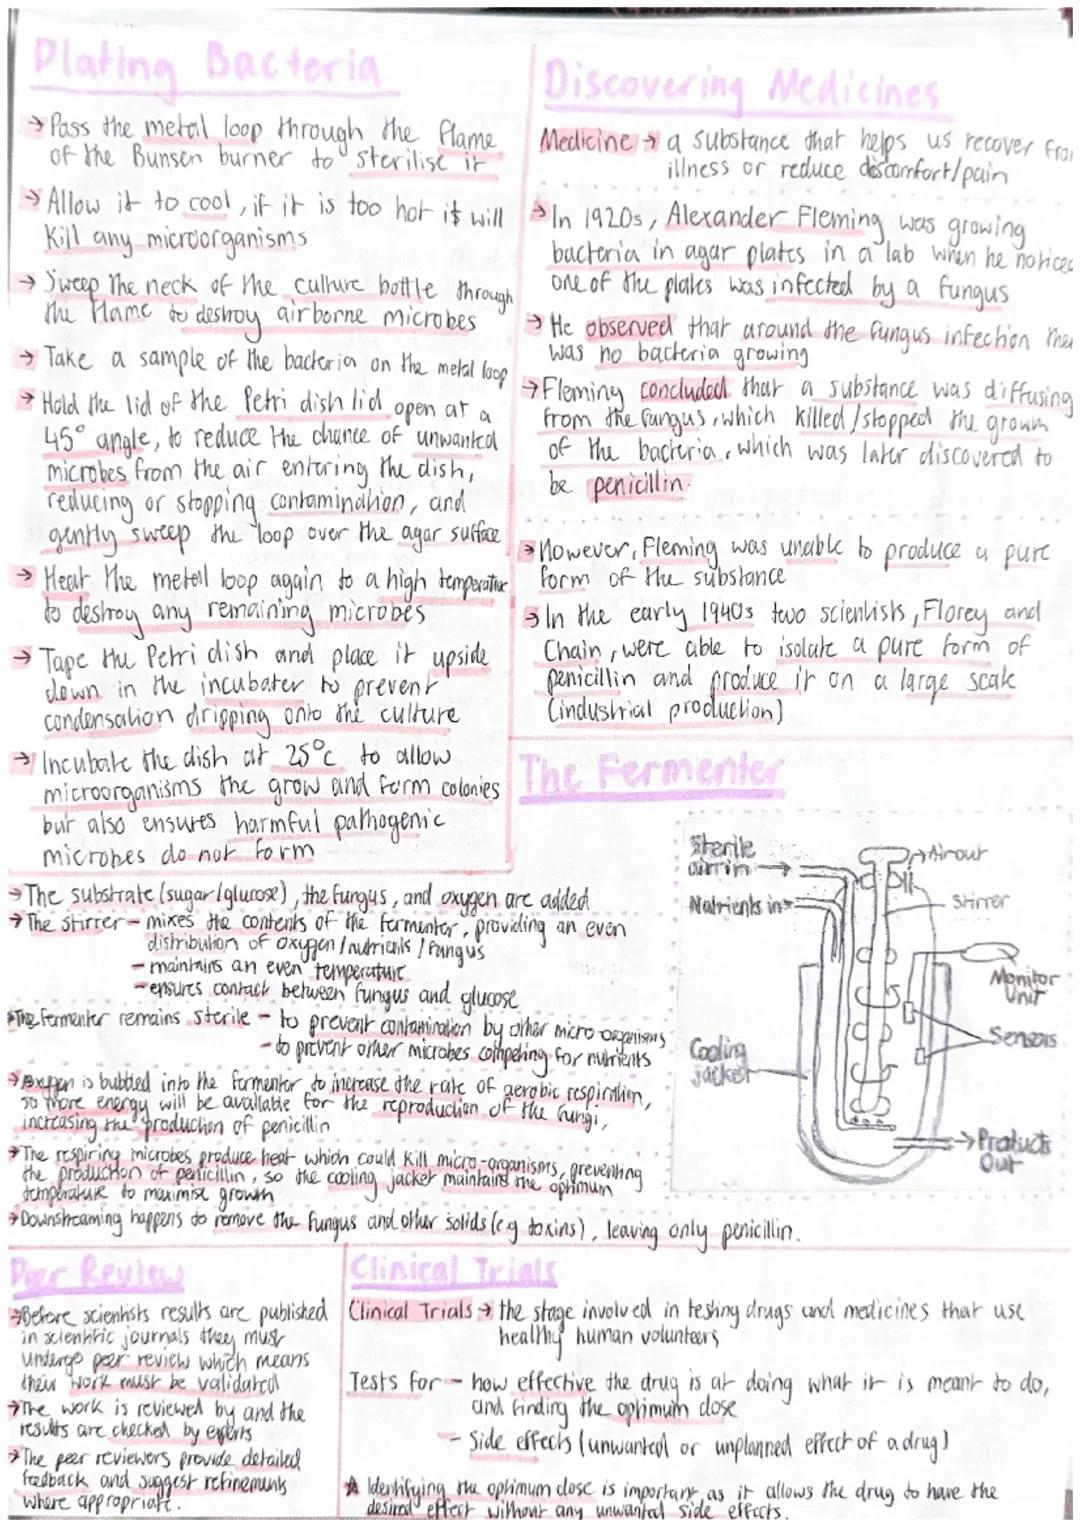 Plating Bacteria
→ Pass the metal loop through the flame
of the Bunsen burner to sterilise it
→ Allow it to cool, if it is too hot it will
kill any microorganisms
→ Sweep the neck of the culture bottle through
the flame to destroy airborne microbes
→ Take a sample of the bacteria on the metal loop
→ Hold the lid of the Petri dish lid open at a
45° angle, to reduce the chance of unwanted
microbes from the air entering the dish,
reducing or stopping contamination, and
gently sweep the loop over the agar surface
→ Heat the metal loop again to a high temperature
to destroy any remaining microbes
→ Tape the Petri dish and place it upside
down in the incubater to prevent
condensation dripping onto the culture
→ Incubate the dish at 25°c to allow
microorganisms the grow and form colonies
but also ensures harmful pathogenic
microbes do not form
Discovering Medicines
Medicine → a substance that helps us recover from
illness or reduce discomfort/pain
→ In 1920s, Alexander Fleming was growing
bacteria in agar plates in a lab when he noticed
one of the plates was infected by a fungus
→ He observed that around the fungus infection ther
was no bacteria growing
→ Fleming concluded that a substance was diffusing
from the fungus, which killed/stopped the growth
of the bacteria, which was later discovered to
be penicillin.
→ However, Fleming was unable to produce a pure
form of the substance
→ In the early 1940s two scientists, Florey and
Chain, were able to isolate a pure form of
penicillin and produce it on a large scale
(industrial production)
The Fermenter
Sterile
air in →
Nutrients in →
→ Air out
Stirrer
Monitor
Unit
Sensors
Cooling
jacket
→ Products
Out
→ The substrate (sugar/glucose), the fungus, and oxygen are added
→ The stirrer - mixes the contents of the fermentor, providing an even
distribution of oxygen/nutrients/fungus
- maintains an even temperature
- ensures contact between fungus and glucose
→ The fermenter remains sterile - to prevent contamination by other micro-organisms
- to prevent other microbes competing for nutrients
→ Oxygen is bubbled into the fermentor to increase the rate of aerobic respiration,
so more energy will be available for the reproduction of the fungi,
increasing the production of penicillin
→ The respiring microbes produce heat which could kill micro-organisms, preventing
the production of penicillin, so the cooling jacket maintains the optimum
temperature to maximise growth
→ Downstreaming happens to remove the fungus and other solids (e.g toxins), leaving only penicillin.
Peer Review
→ Before scientists results are published
in scientific journals they must
undergo peer review which means
their work must be validated
→ The work is reviewed by and the
results are checked by experts
→ The peer reviewers provide detailed
feedback and suggest refinements
where appropriate.
Clinical Trials
Clinical Trials → the stage involved in testing drugs and medicines that use
healthy human volunteers
Tests for - how effective the drug is at doing what it is meant to do,
and finding the optimum dose
- Side effects (unwanted or unplanned effect of a drug)
☆ Identifying the optimum dose is important, as it allows the drug to have the
desired effect without any unwanted side effects.